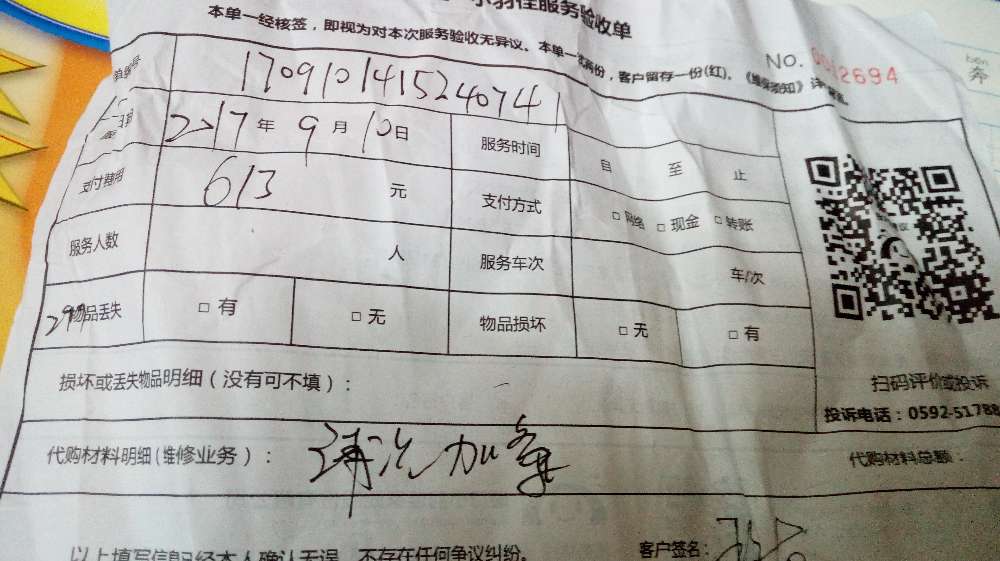 服务验收单
本单一经核签，即视为对本次服务验收无异议。本单一式两份，客户留存一份(红)。
NO. 2694
1709101415240741
2017年9月10日 服务时间 自 至 止
支付费用 613 元 支付方式 □网络 □现金 □转账
服务人数 人 服务车次 车/次
物品丢失 □有 □无 物品损坏 □无 □有
损坏或丢失物品明细（没有可不填）：
扫码评价或投诉
投诉电话：0592-51788
代购材料明细（维修业务）： 清洗加
代购材料总额：
以上填写信息已经本人确认无误，不存在任何争议纠纷。
客户签名：
ben
奔